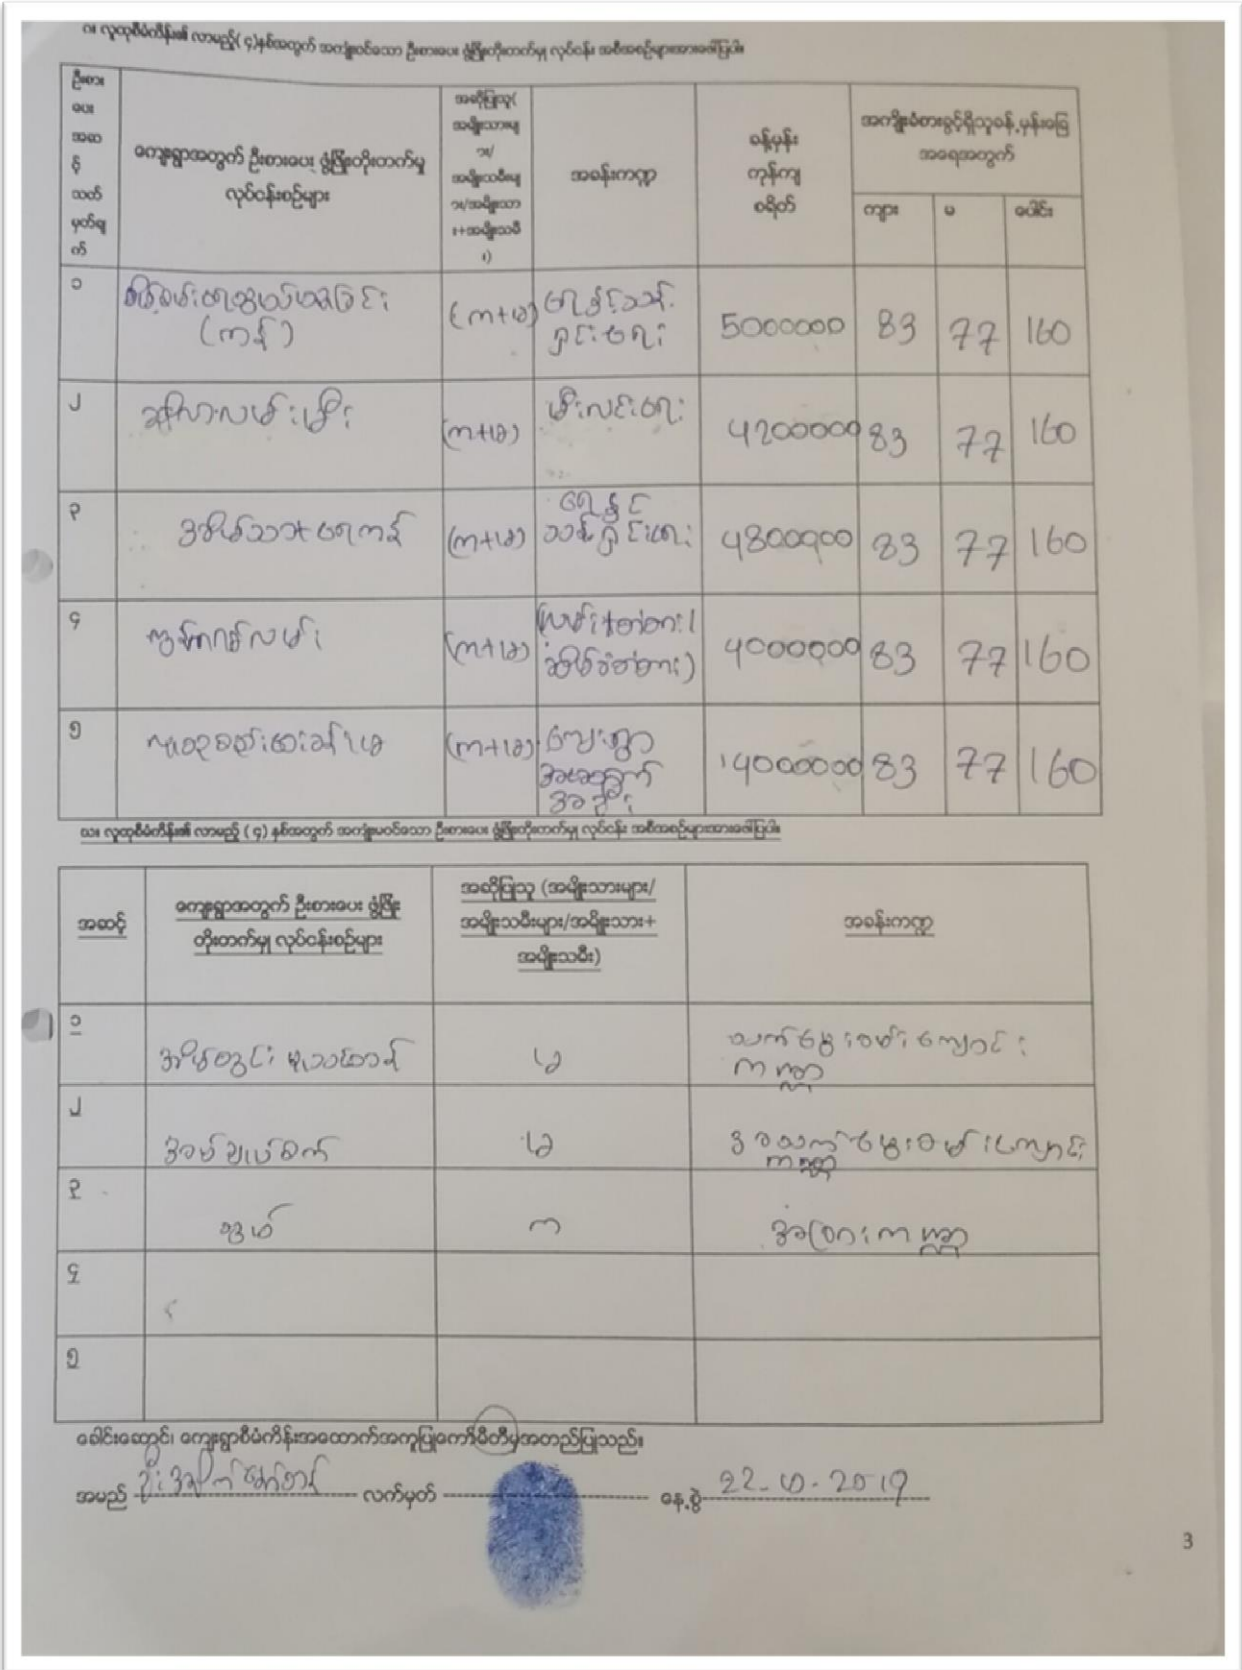 ဂ။ လူထုစီမံကိန်း၏ လာမည့်(၄)နှစ်အတွက် အကျုံးဝင်သော ဦးစားပေး ဖွံ့ဖြိုးတိုးတက်မှု လုပ်ငန်း အစီအစဉ်များအားဖော်ပြပါ။
ဦးစား
ပေး
အဆ
င့်
သတ်
မှတ်ချ
က်
ကျေးရွာအတွက် ဦးစားပေး ဖွံ့ဖြိုးတိုးတက်မှု
လုပ်ငန်းစဉ်များ
အဆိုပြုသူ(
အမျိုးသားမျ
ား/
အမျိုးသမီးမျ
ား/အမျိုးသာ
း+အမျိုးသမီ
း)
အခန်းကဏ္ဍ
ခန့်မှန်း
ကုန်ကျ
စရိတ်
အကျိုးခံစားခွင့်ရှိသူခန့်မှန်းခြေ
အရေအတွက်
ကျား မ ပေါင်း
၁ စိမ့်စမ်းရေသွယ်ယူခြင်း (ကန်) (ကျ+မ) ရေနှင့်သန့်ရှင်းရေး 5000000 83 77 160
၂ ဆိုလာလမ်းမီး (ကျ+မ) မီးလင်းရေး 4200000 83 77 160
၃ အိမ်သာ+ရေကန် (ကျ+မ) ရေနှင့်သန့်ရှင်းရေး 4800000 83 77 160
၄ ကွန်ကရစ်လမ်း (ကျ+မ) (လမ်း+တံတား/ဆိပ်ခံတံတား) 4000000 83 77 160
၅ (ကျ+မ) ကျေးရွာအဆောက်အဦး 14000000 83 77 160
ဃ။ လူထုစီမံကိန်း၏ လာမည့် (၄) နှစ်အတွက် အကျုံးမဝင်သော ဦးစားပေး ဖွံ့ဖြိုးတိုးတက်မှု လုပ်ငန်း အစီအစဉ်များအားဖော်ပြပါ။
အဆင့်
ကျေးရွာအတွက် ဦးစားပေး ဖွံ့ဖြိုး
တိုးတက်မှု လုပ်ငန်းစဉ်များ
အဆိုပြုသူ (အမျိုးသားများ/
အမျိုးသမီးများ/အမျိုးသား+
အမျိုးသမီး)
အခန်းကဏ္ဍ
၁ အိမ်တွင်း မ သက်မွေးဝမ်းကျောင်းကဏ္ဍ
၂ အပ်ချုပ်စက် မ အသက်မွေးဝမ်းကျောင်းကဏ္ဍ
၃ ကျ အခြားကဏ္ဍ
၄
၅
ခေါင်းဆောင်၊ ကျေးရွာစီမံကိန်းအထောက်အကူပြုကော်မီတီမှအတည်ပြုသည်။
အမည် ဦး လက်မှတ် နေ့စွဲ 22-၅-2019
3